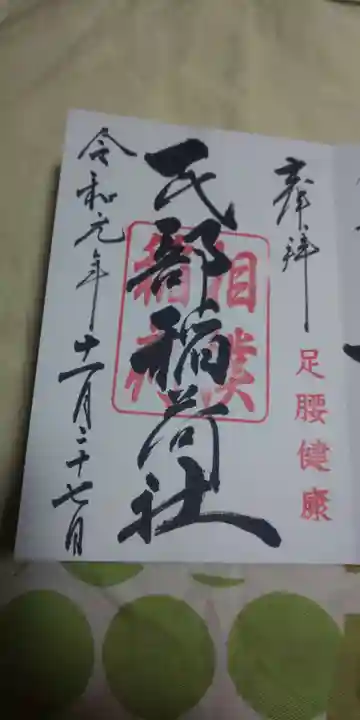 奉拝
足腰健康
民部稲荷社
相撲
稲荷
令和元年十一月二十七日